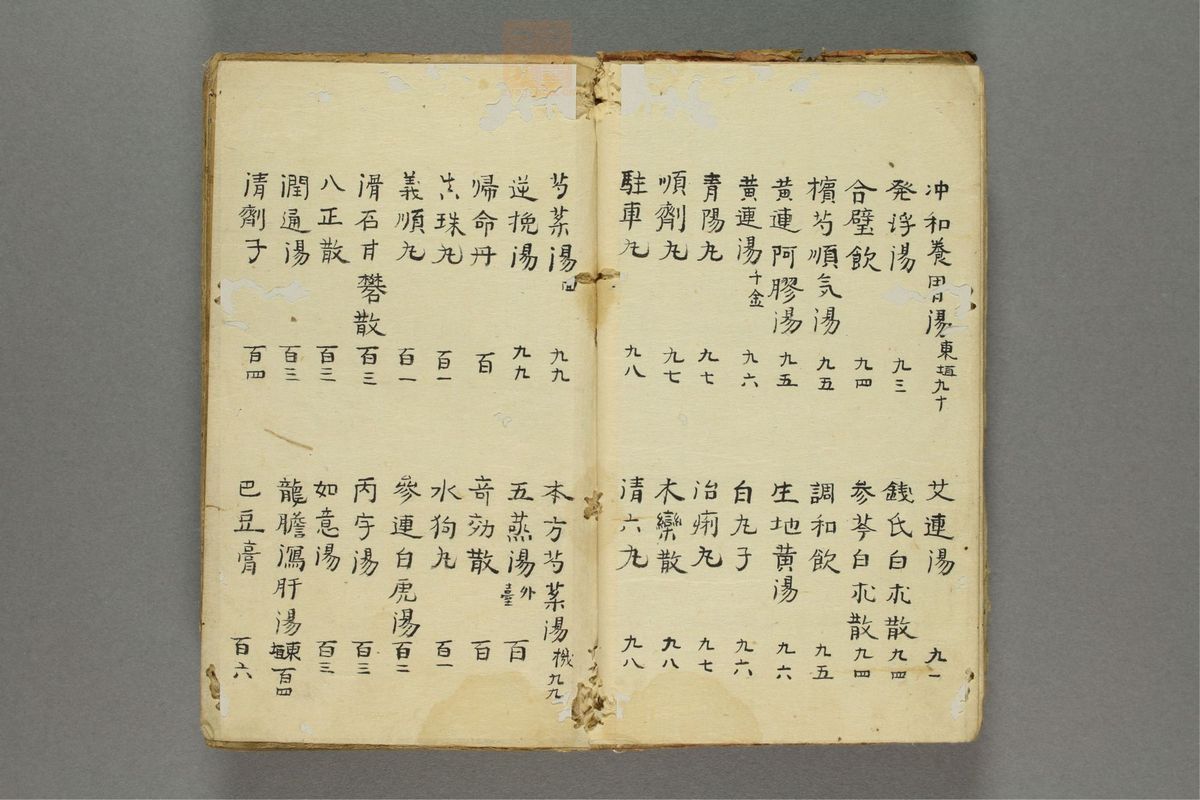 冲和養胃湯 東垣 九十 艾連湯 九一
発浮湯 九三 銭氏白朮散 九四
合壁飲 九四 参苓白朮散 九四
檳芍順気湯 九五 調和飲 九五
黄連阿膠湯 九五 生地黄湯 九六
黄連湯 千金 九六 白丸子 九六
青陽丸 九七 治痢丸 九七
順劑丸 九七 木欒散 九八
駐車丸 九八 清六丸 九八
芍薬湯 回 九九 本方芍薬湯 機 九九
逆挽湯 九九 五蒸湯 外臺 百
帰命丹 百 奇効散 百
真珠丸 百一 水狗丸 百一
義順丸 百一 參連白虎湯 百二
滑石甘礬散 百三 丙字湯 百三
八正散 百三 如意湯 百三
潤通湯 百三 龍膽瀉肝湯 東垣 百四
清劑子 百四 巴豆膏 百六